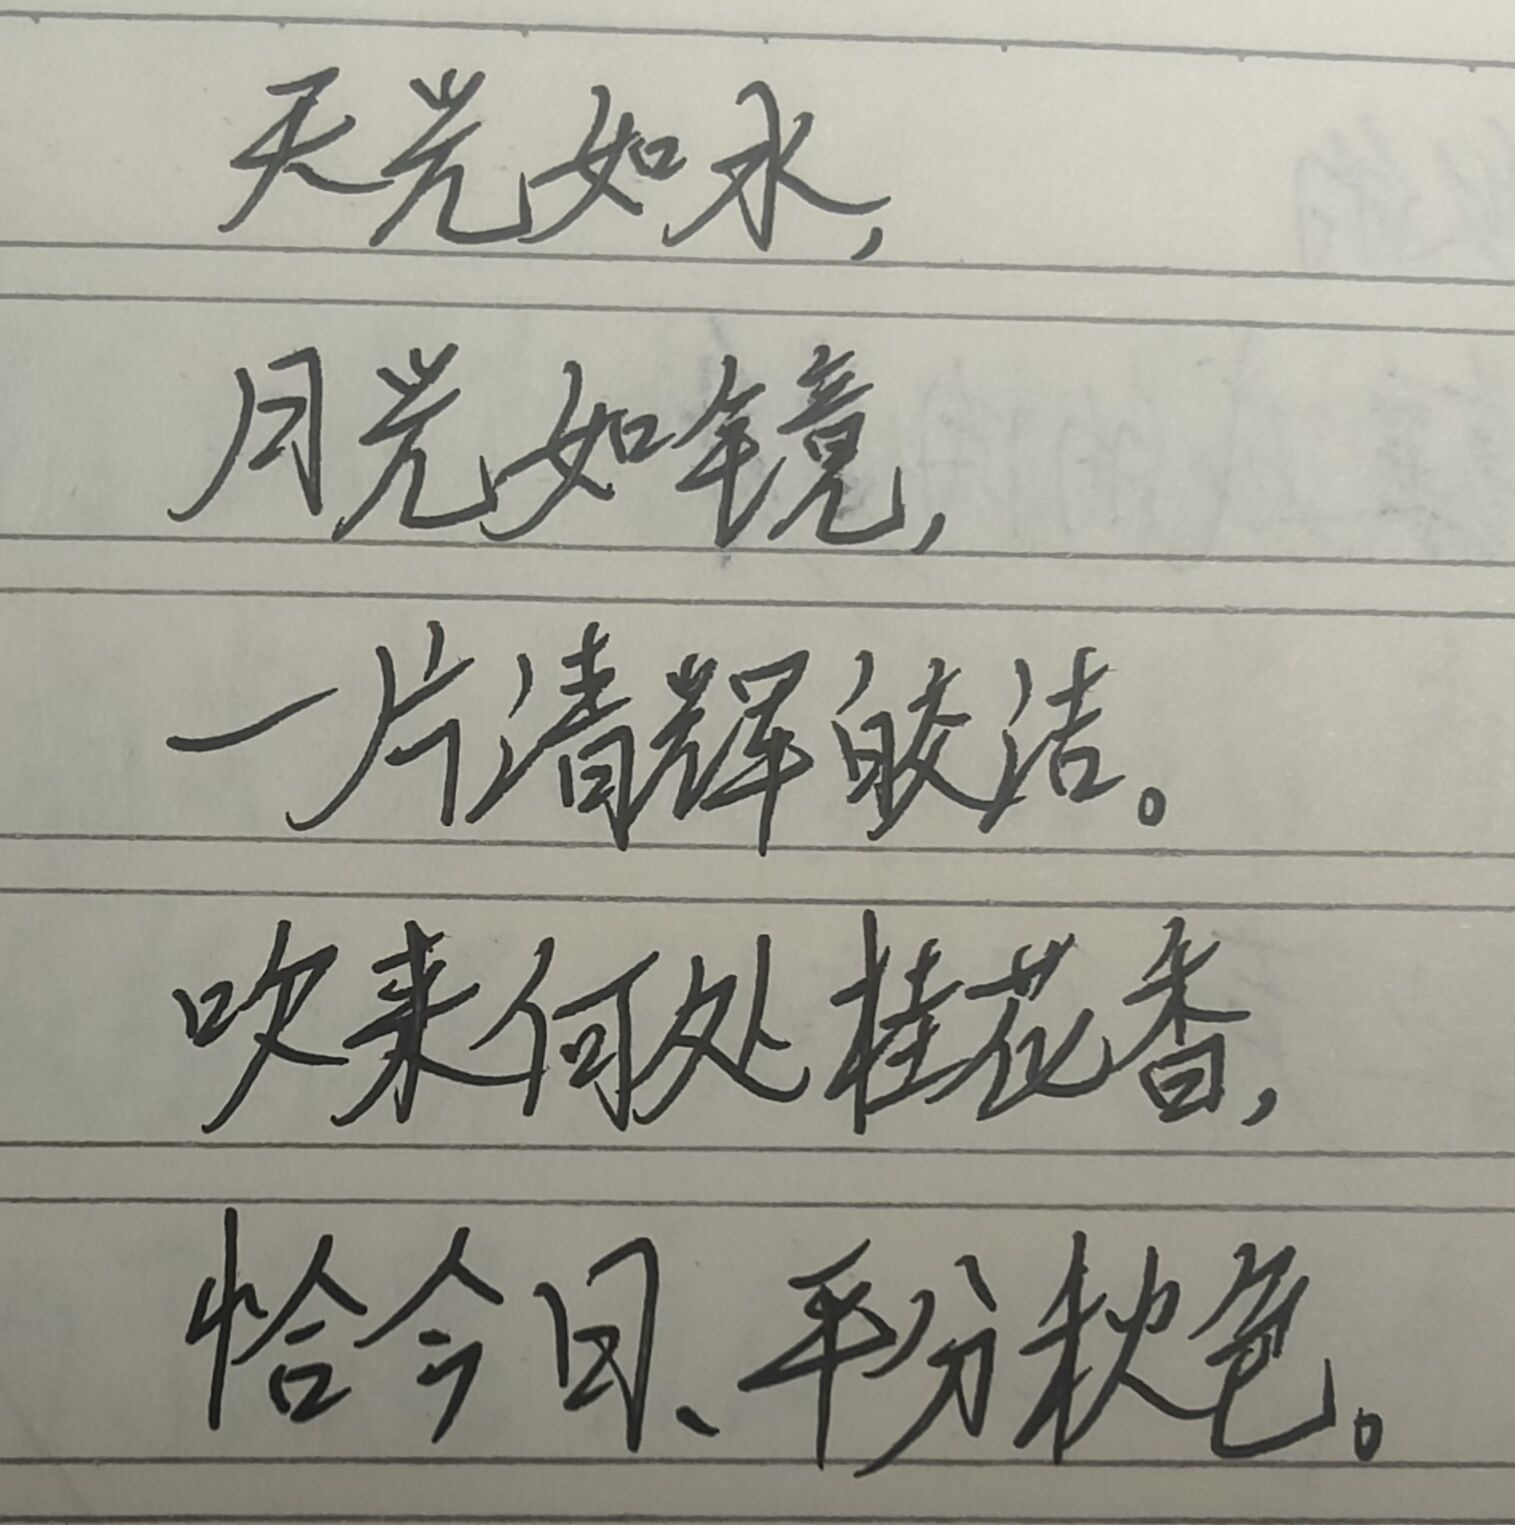 天光如水，
月光如镜，
一片清辉皎洁。
吹来何处桂花香，
恰今日、平分秋色。